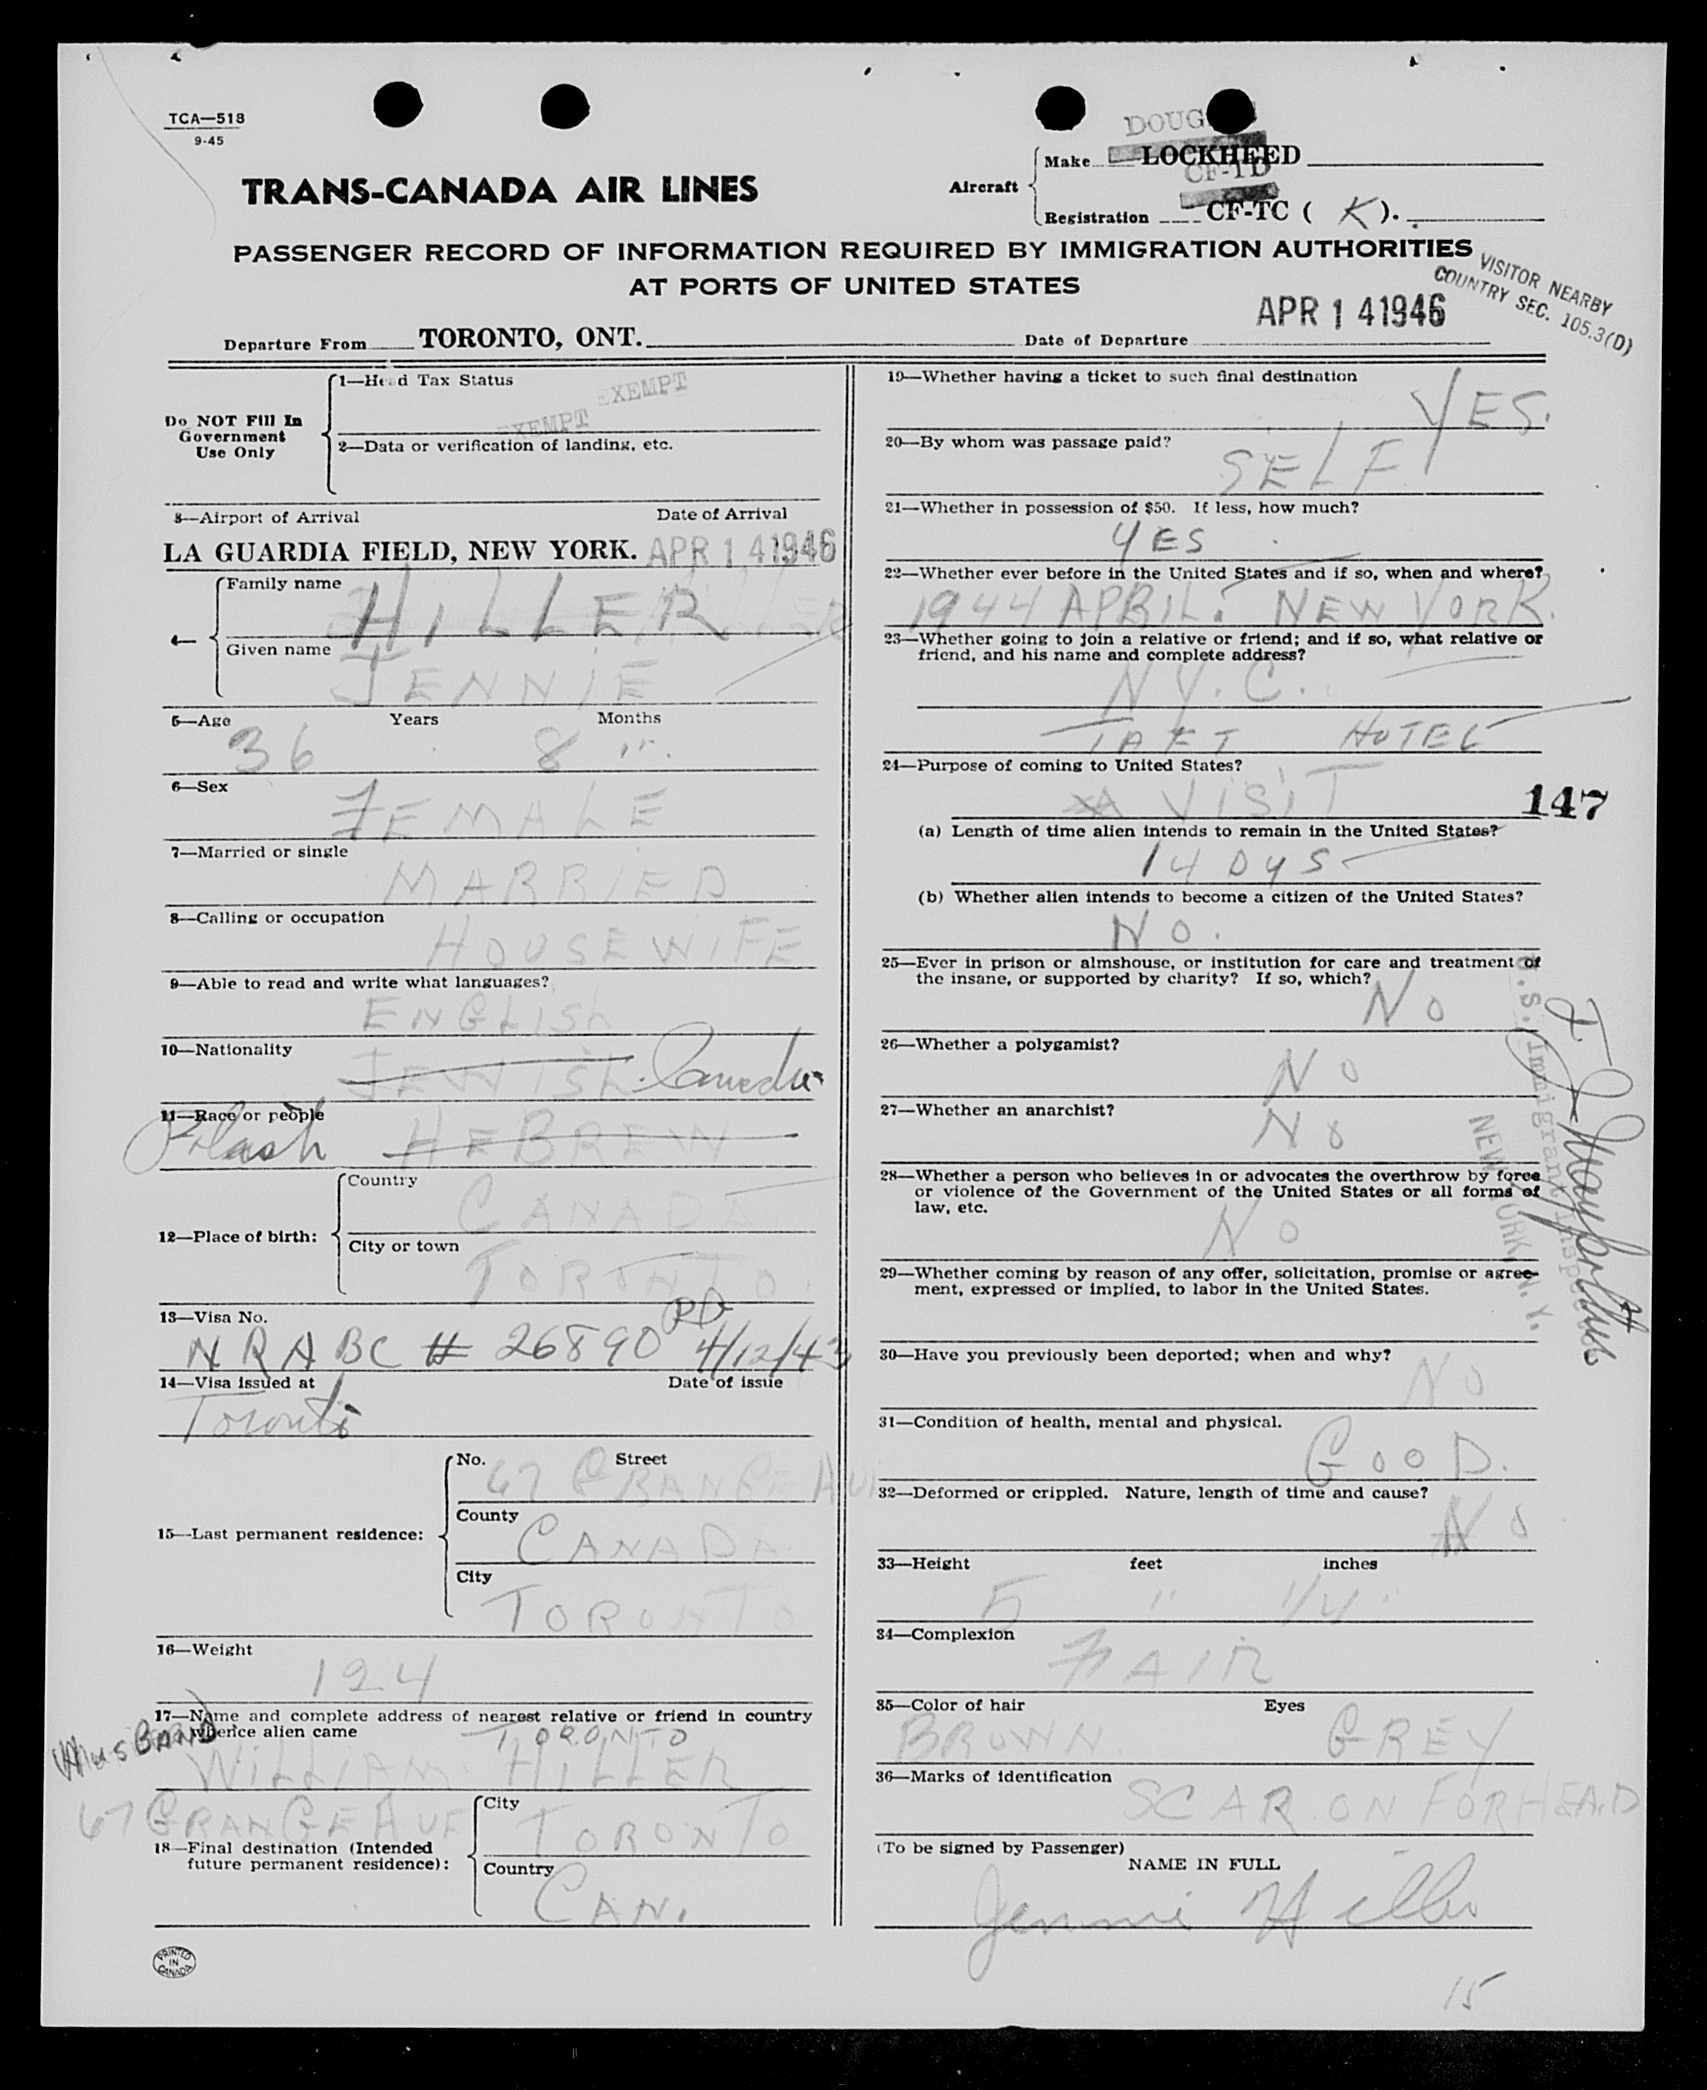 TCA—518
9-45
TRANS-CANADA AIR LINES
Aircraft
DOUG
Make LOCKHEED
CF-TD
Registration CF-TC ( K ).
PASSENGER RECORD OF INFORMATION REQUIRED BY IMMIGRATION AUTHORITIES
AT PORTS OF UNITED STATES
VISITOR NEARBY
COUNTRY SEC. 105.3(D)
Departure From TORONTO, ONT. Date of Departure APR 14 1946
Do NOT Fill In
Government
Use Only
1—Head Tax Status
EXEMPT
EXEMPT
2—Data or verification of landing, etc.
3—Airport of Arrival Date of Arrival
LA GUARDIA FIELD, NEW YORK. APR 14 1946
4—
Family name HILLER
Given name JENNIE
5—Age Years Months
36 8
6—Sex
FEMALE
7—Married or single
MARRIED
8—Calling or occupation
HOUSEWIFE
9—Able to read and write what languages?
ENGLISH
10—Nationality
JEWISH
11—Race or people
HEBREW
12—Place of birth:
Country
CANADA
City or town
TORONTO.
13—Visa No.
NRABC # 26890 4/12/43
14—Visa issued at Date of issue
Toronto
15—Last permanent residence:
No. Street
67 GRANGE AVE
County
CANADA
City
TORONTO
16—Weight
124
17—Name and complete address of nearest relative or friend in country
whence alien came
HUSBAND TORONTO
WILLIAM HILLER
67 GRANGE AVE
18—Final destination (Intended
future permanent residence):
City
TORONTO
Country
CAN.
PRINTED
IN
CANADA
19—Whether having a ticket to such final destination
YES.
20—By whom was passage paid?
SELF
21—Whether in possession of $50. If less, how much?
YES
22—Whether ever before in the United States and if so, when and where?
1944 APRIL. NEW YORK.
23—Whether going to join a relative or friend; and if so, what relative or
friend, and his name and complete address?
N.Y.C.
TAFT HOTEL
24—Purpose of coming to United States?
A VISIT
147
(a) Length of time alien intends to remain in the United States?
14 DYS
(b) Whether alien intends to become a citizen of the United States?
NO.
25—Ever in prison or almshouse, or institution for care and treatment of
the insane, or supported by charity? If so, which?
NO
26—Whether a polygamist?
NO
27—Whether an anarchist?
NO
28—Whether a person who believes in or advocates the overthrow by force
or violence of the Government of the United States or all forms of
law, etc.
NO
29—Whether coming by reason of any offer, solicitation, promise or agree-
ment, expressed or implied, to labor in the United States.
30—Have you previously been deported; when and why?
NO
31—Condition of health, mental and physical.
GOOD.
32—Deformed or crippled. Nature, length of time and cause?
NO
33—Height feet inches
5 1/4
34—Complexion
FAIR
35—Color of hair Eyes
BROWN GREY
36—Marks of identification
SCAR ON FORHEAD
(To be signed by Passenger)
NAME IN FULL
Jennie Hiller
15
U.S. Immigrant Inspector
NEW YORK, N.Y.